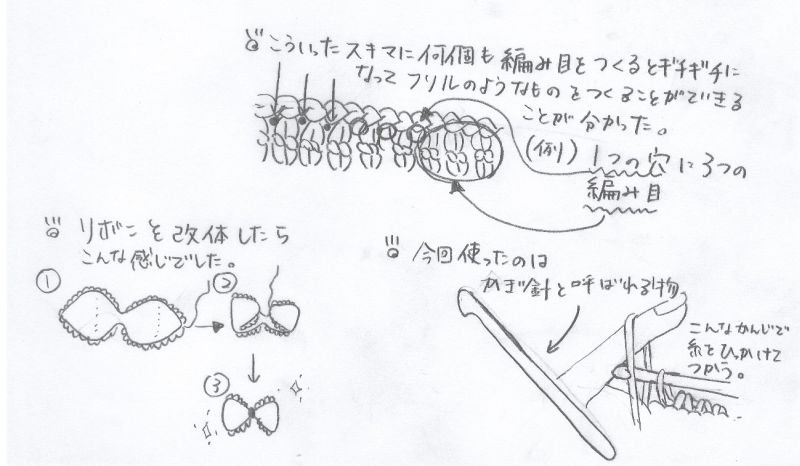 こういったスキマに何個も編み目をつくるとギチギチに
なってフリルのようなものをつくることができる
ことが分かった。
(例) 1つの穴に3つの
編み目
リボンを改体したら
こんな感じでした。
①
②
③
今回使ったのは
かぎ針と呼ばれる物
こんなかんじで
糸をひっかけて
つかう。